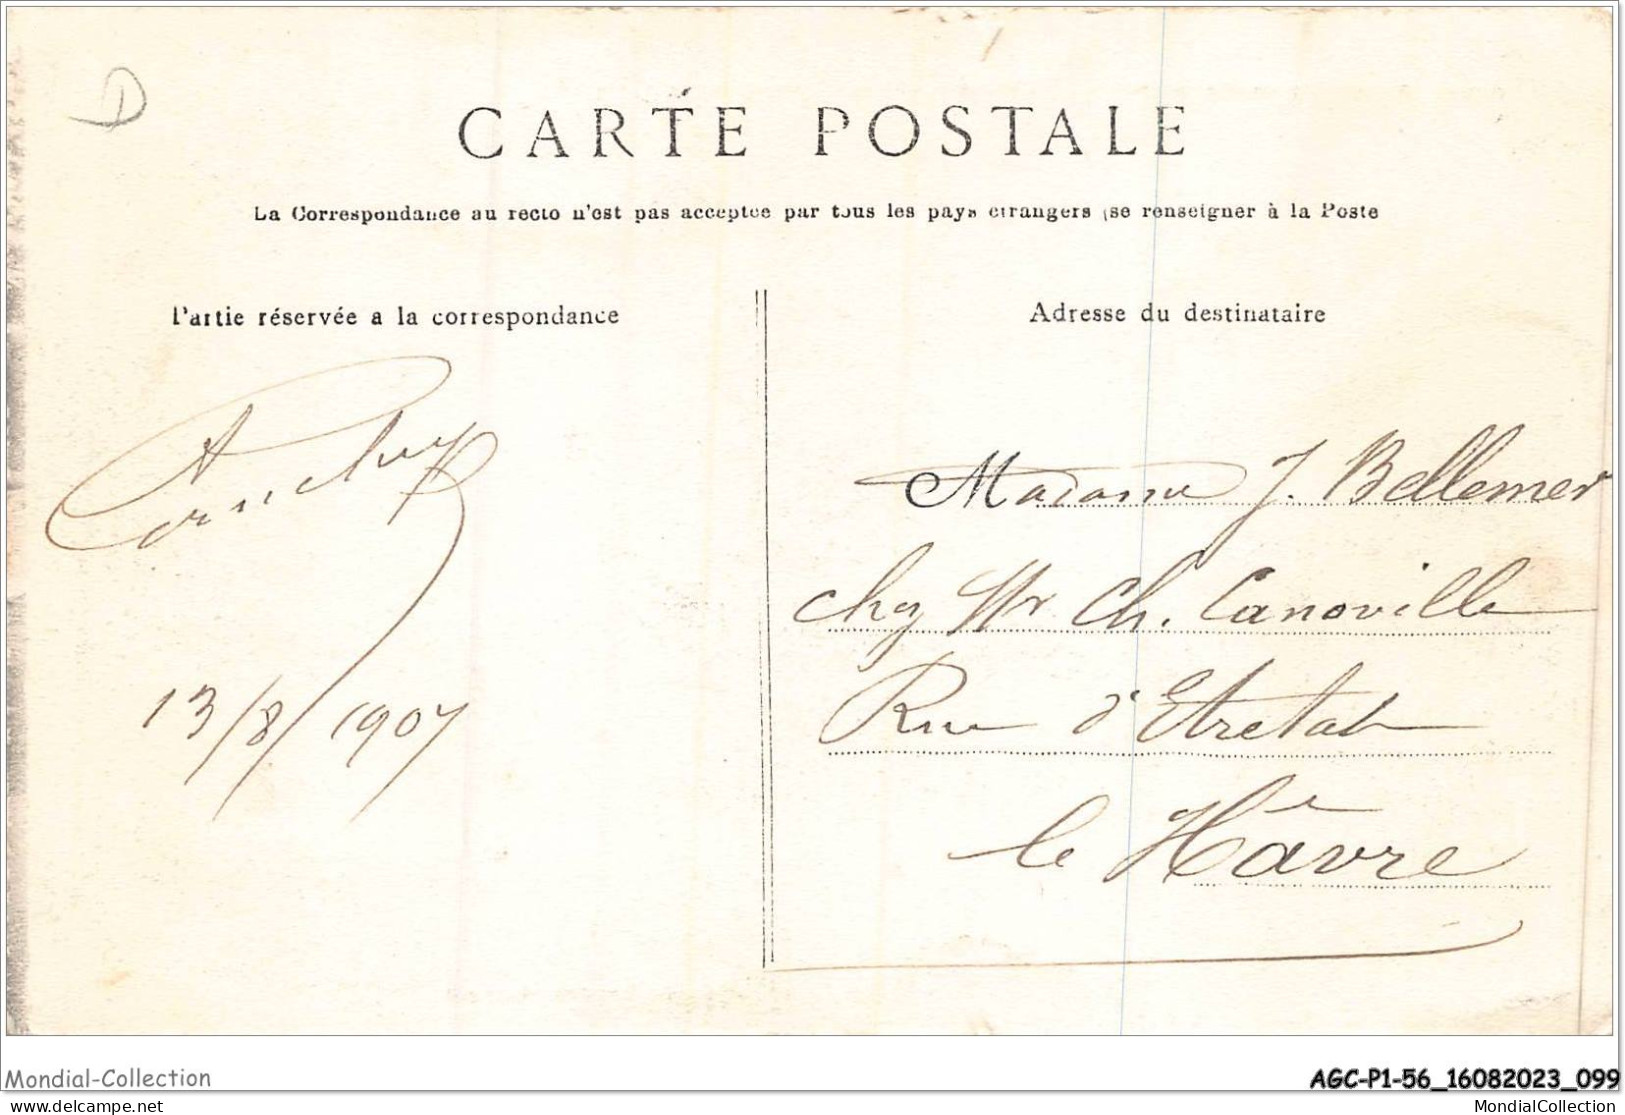 D
CARTE POSTALE
La Correspondance au recto n'est pas acceptée par tous les pays étrangers (se renseigner à la Poste
Partie réservée a la correspondance
Adresse du destinataire
13/8/1907
Madame J. Bellemer
chez Mr Ch. Canoville
Rue d'Etretat
le Hâvre
Mondial-Collection
AGC-P1-56_16082023_099
www.delcampe.net
MondialCollection